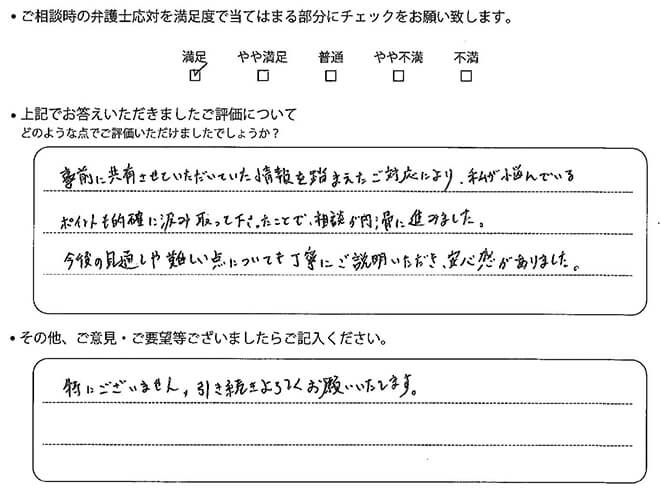 • ご相談時の弁護士応対を満足度で当てはまる部分にチェックをお願い致します。
満足 やや満足 普通 やや不満 不満
• 上記でお答えいただきましたご評価について
どのような点でご評価いただけましたでしょうか?
事前に共有させていただいていた情報を踏まえたご対応により、私が悩んでいる
ポイントも的確に汲み取って下さったことで、相談が円滑に進みました。
今後の見通しや難しい点についても丁寧にご説明いただき、安心感がありました。
• その他、ご意見・ご要望等ございましたらご記入ください。
特にございません。引き続きよろしくお願いいたします。